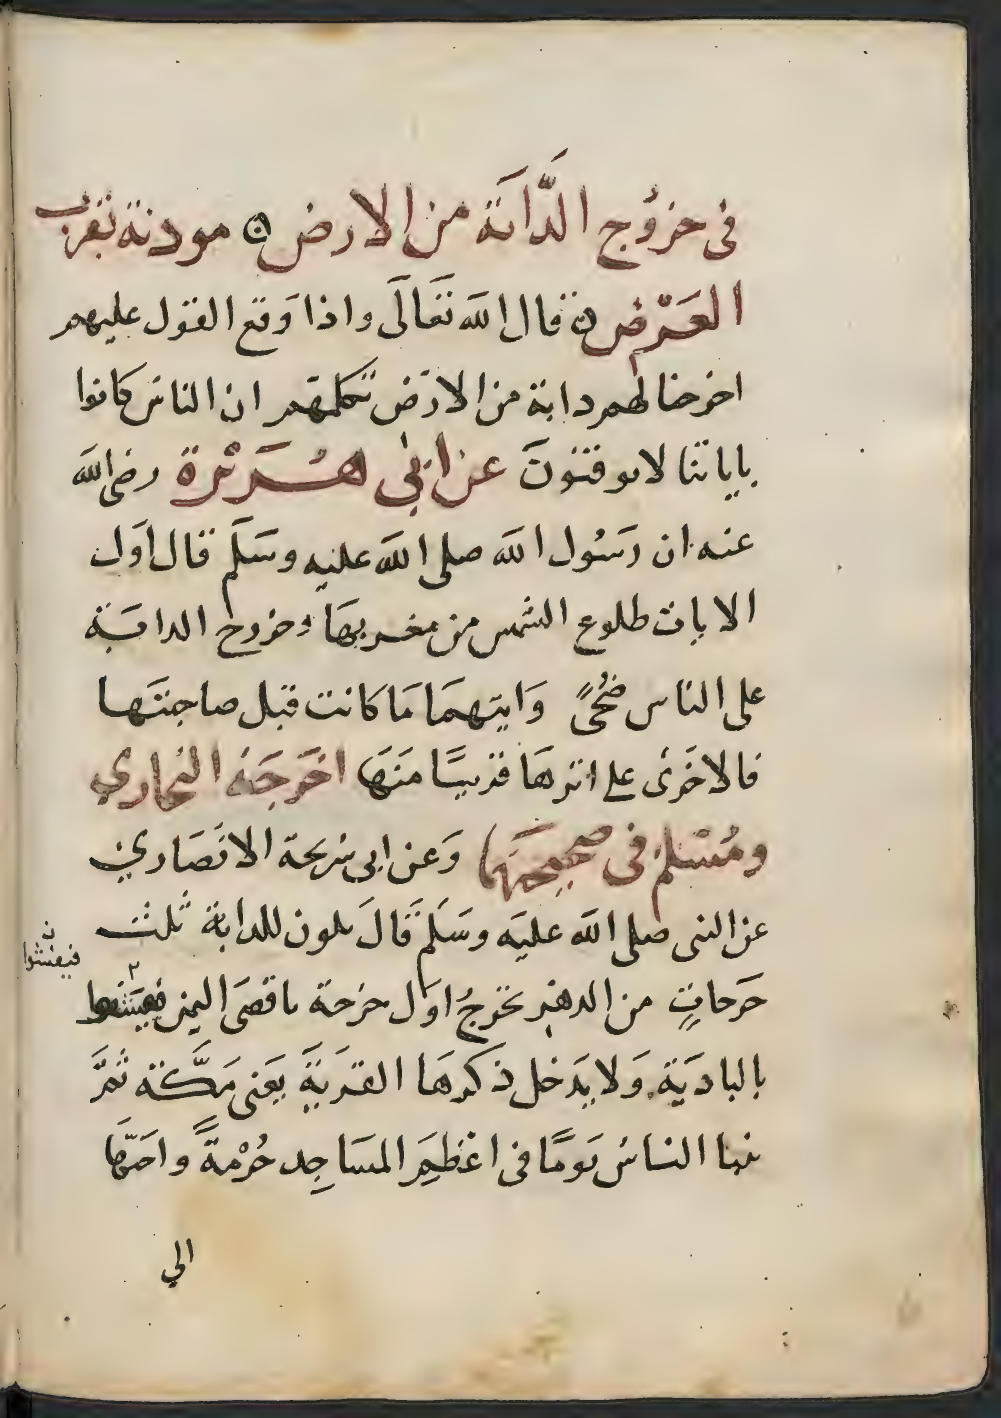 في خروج الدَّابَة من الارض ن موذنة بقرب
العَرْض ن قال الله تَعَالَى واذا وَقع القول عليهم
اخرجنا لهم دابة من الارض تكلمهم ان الناس كانوا
باياتنا لا يوقنونَ عن ابي هُرَيْرة رضي الله
عنه ان رَسُول الله صلى الله عليه وسَلَّم قال اوَل
الايات طلوع الشمس من مغربهَا وخروج الدابَة
على الناس ضُحًى وَايتهمَا مَا كانت قبل صاحبتَها
فالاخَرى على اثرهَا قريبًا منهَا اخرَجَه البُخاري
ومُسْلم في صحيحَيهما وَعن ابي سريحة الانصَاري
عن النبي صلى الله عليَه وسَلم قَالَ يكون للدابة ثلث
خَرجاتٍ من الدهر تخرجُ اوَل خرجة باقصَى اليمن فيفشوا
فيفشوا ن
بالبادَية وَلا يدَخل ذكرهَا القريَةَ يَعنى مَكَّة ثمَّ
بينا الناسُ يَومًا في اعْظَمِ المسَاجِد حُرْمةً واحَبّهَا
الي